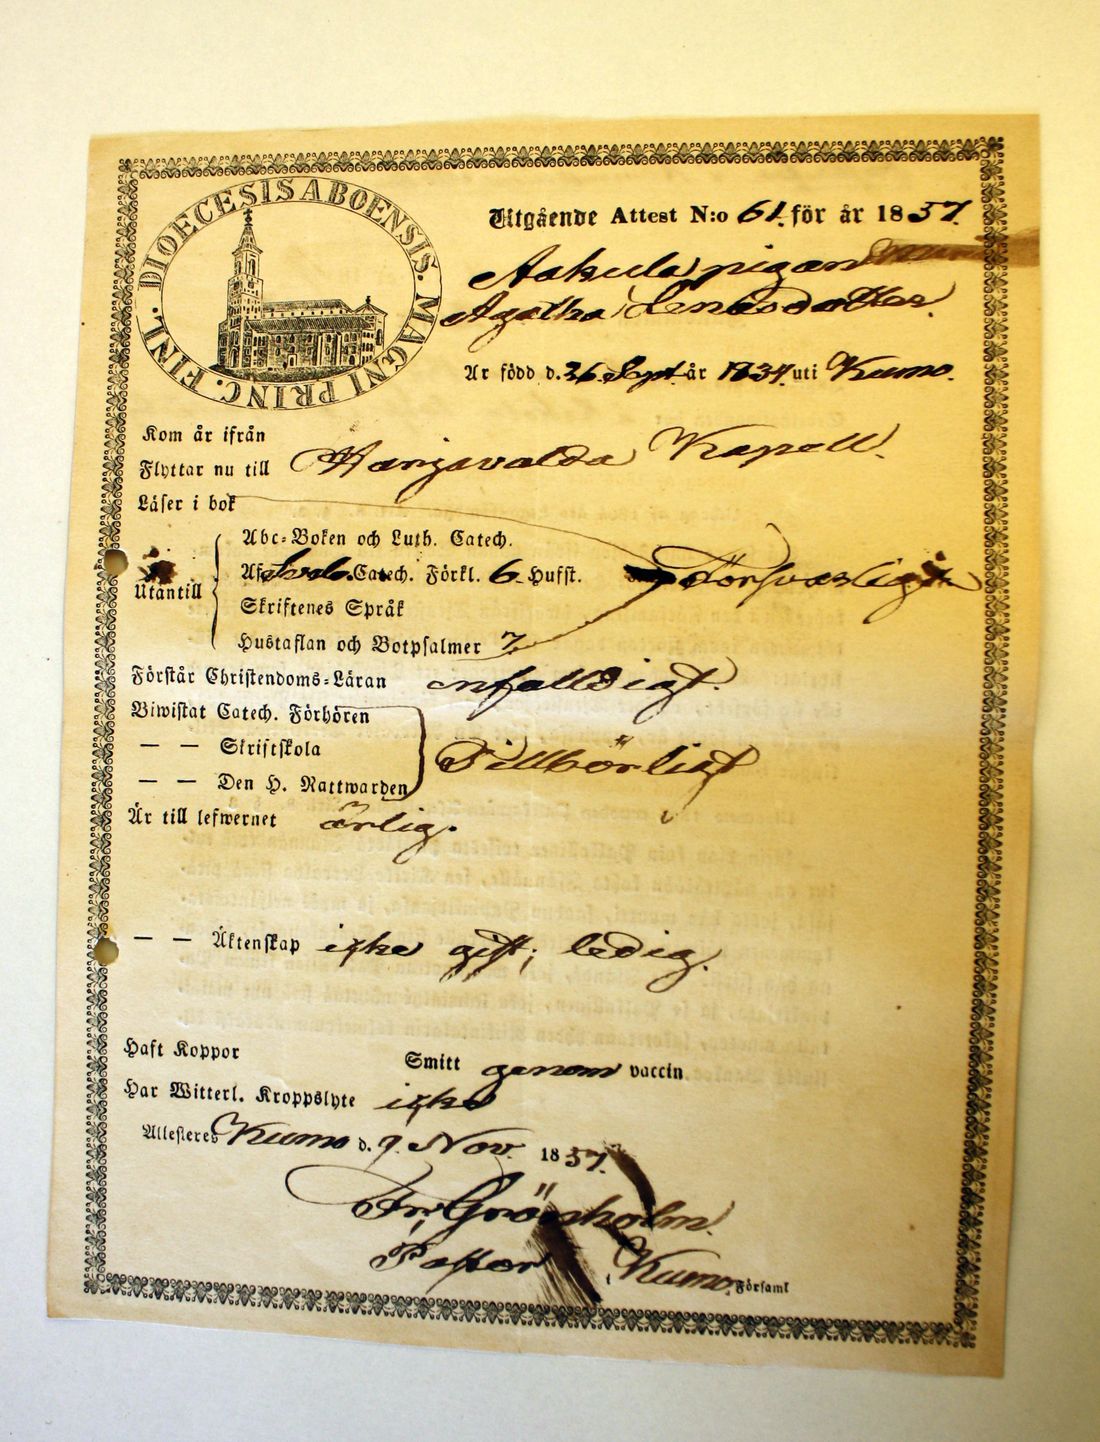 DIOECESIS ABOENSIS. MAGNI PRINC. FINL.
Utgående Attest N:o 61. för år 1857.
Aakula pigan
Agatha Enasdotter.
Är född d. 26. Sept. år 1834. uti Kumo.
Kom år ifrån
Flyttar nu till Harjavalda Kapell.
Läser i bok
Abc-Boken och Luth. Catech.
Utantill Af Sveb. Catech. Förkl. 6. Hufst. Försvarligt
Skriftenes Språk
Hustaflan och Botpsalmer 7.
Förstår Christendoms-Läran enfalldigt.
Biwistat Catech. Förhören
— — Skriftskola Tillbörligt
— — Den H. Nattwarden
Är till lefwernet ärlig.
— — Äktenskap icke gift; ledig.
Haft Koppor Smitt genom vaccin
Har Witterl. Kroppslyte icke
Attesteres Kumo d. 9. Nov. 1857.
Fr. Grönholm.
Pastor i Kumo Församl